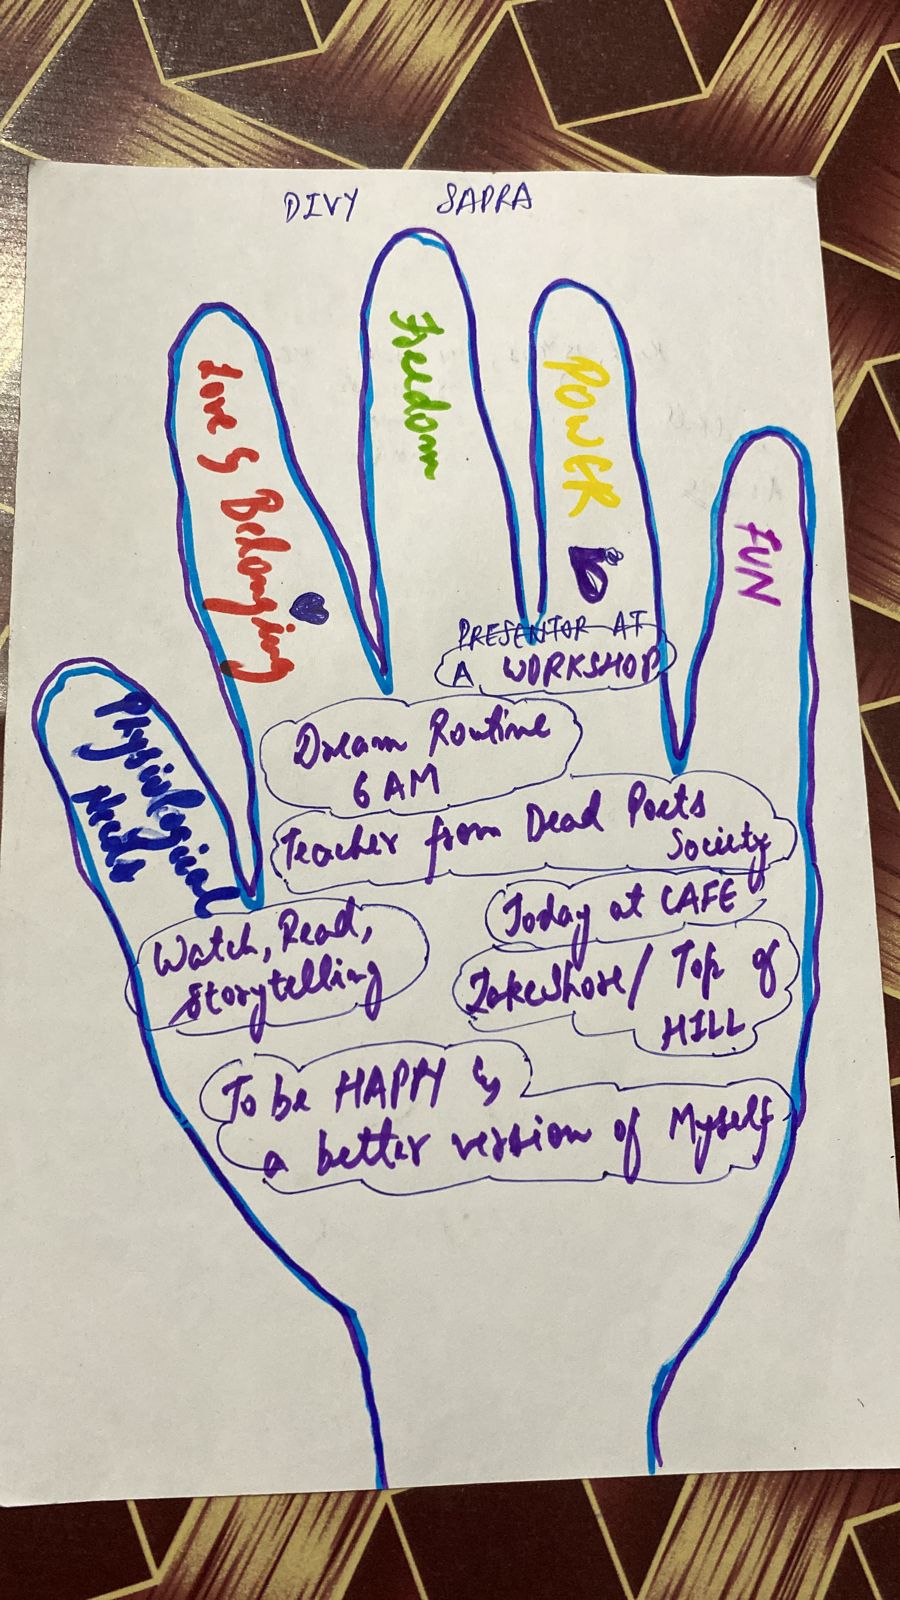 DIVY SAPRA
Love & Belonging
Freedom
POWER
FUN
Physiological
Needs
PRESENTOR AT
A WORKSHOP
Dream Routine
6 AM
Teacher from Dead Poets
Society
Today at CAFE
Watch, Read,
Storytelling
Lakeshore/ Top of
HILL
To be HAPPY &
a better version of Myself